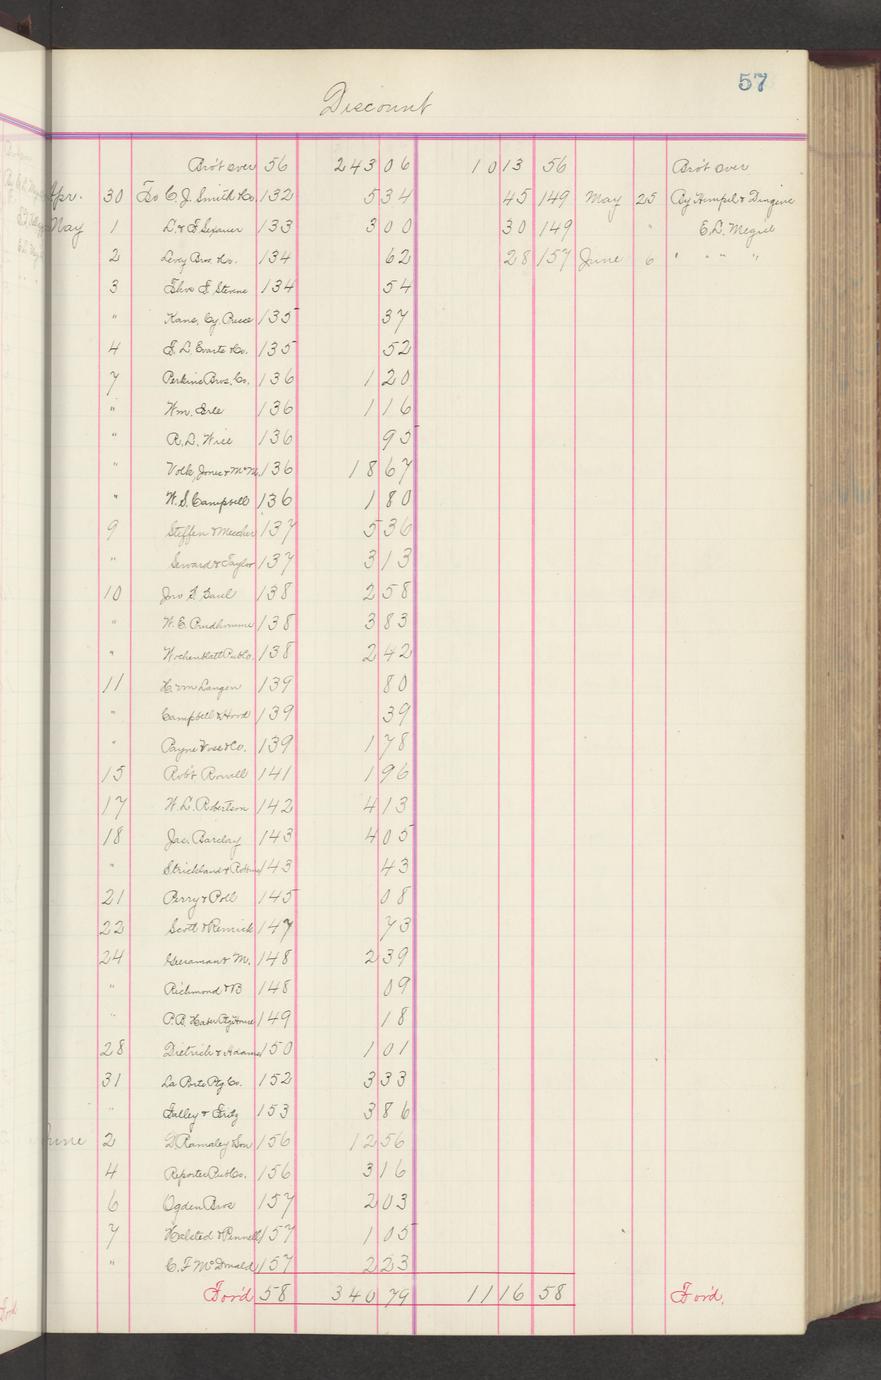 57
Discount
Bro't over 56 243 06 10 13 56 Bro't over
Apr. 30 To C. J. Smith & Co. 132 5 34 45 149 May 25 By Hempel &
May 1 L. & E. 133 3 00 30 149 " E. L. Megill
2 Levey Bros. & Co. 134 62 28 157 June 6 " " " "
3 Thos. F. Stevens 134 54
" Kane, Cy. 135 37
4 S. L. Evarts & Co. 135 52
7 Perkins Bros. Co. 136 1 20
" Wm. 136 1 16
" R. L. Wise 136 95
" Volk Jones & McM. 136 18 67
" W. S. Campbell 136 1 80
9 Steffen & 137 5 36
" Seward & Taylor 137 3 13
10 Jno F. 138 2 58
" W. E. Prudhomme 138 3 83
" Wochenblatt Pub Co. 138 2 42
11 Langen 139 80
" Campbell & Hood 139 39
" Payne & Co. 139 1 78
15 Rob't Rowell 141 1 96
17 W. L. Robertson 142 4 13
18 Jas. Barclay 143 4 05
" Strickland & 143 43
21 Perry & Poll 145 08
22 Scott & Remick 147 73
24 & M. 148 2 39
" Richmond & B 148 09
" P. B. Ptg House 149 18
28 Dietrich & Adams 150 1 01
31 La Porte Ptg Co. 152 3 33
" Talley & Fritz 153 3 86
June 2 D Ramaley & Son 156 12 56
4 Reporter Pub Co. 156 3 16
6 Ogden Bros 157 2 03
7 Halsted & Pinnell 157 1 05
" C. F McDonald 157 2 23
For'd 58 340 79 11 16 58 For'd.